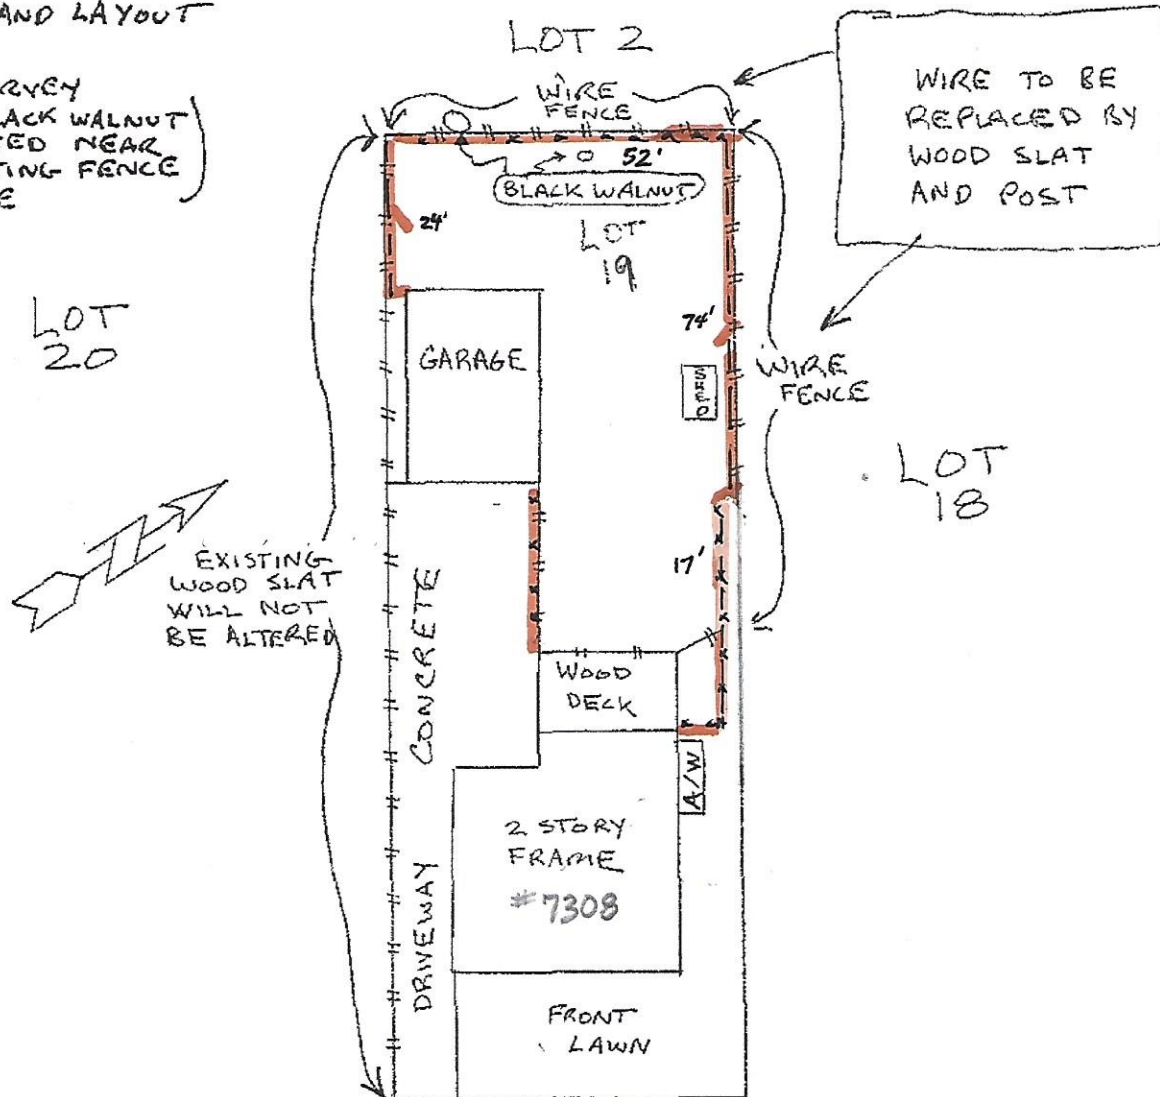 AND LAYOUT
RVEY
LACK WALNUT
TED NEAR
TING FENCE
E
LOT 2
WIRE
FENCE
WIRE TO BE
REPLACED BY
WOOD SLAT
AND POST
52'
BLACK WALNUT
24'
LOT
19
LOT
20
74'
GARAGE
SHED
WIRE
FENCE
LOT
18
N
EXISTING
WOOD SLAT
WILL NOT
BE ALTERED
17'
DRIVEWAY CONCRETE
WOOD
DECK
A/W
2 STORY
FRAME
#7308
FRONT
LAWN